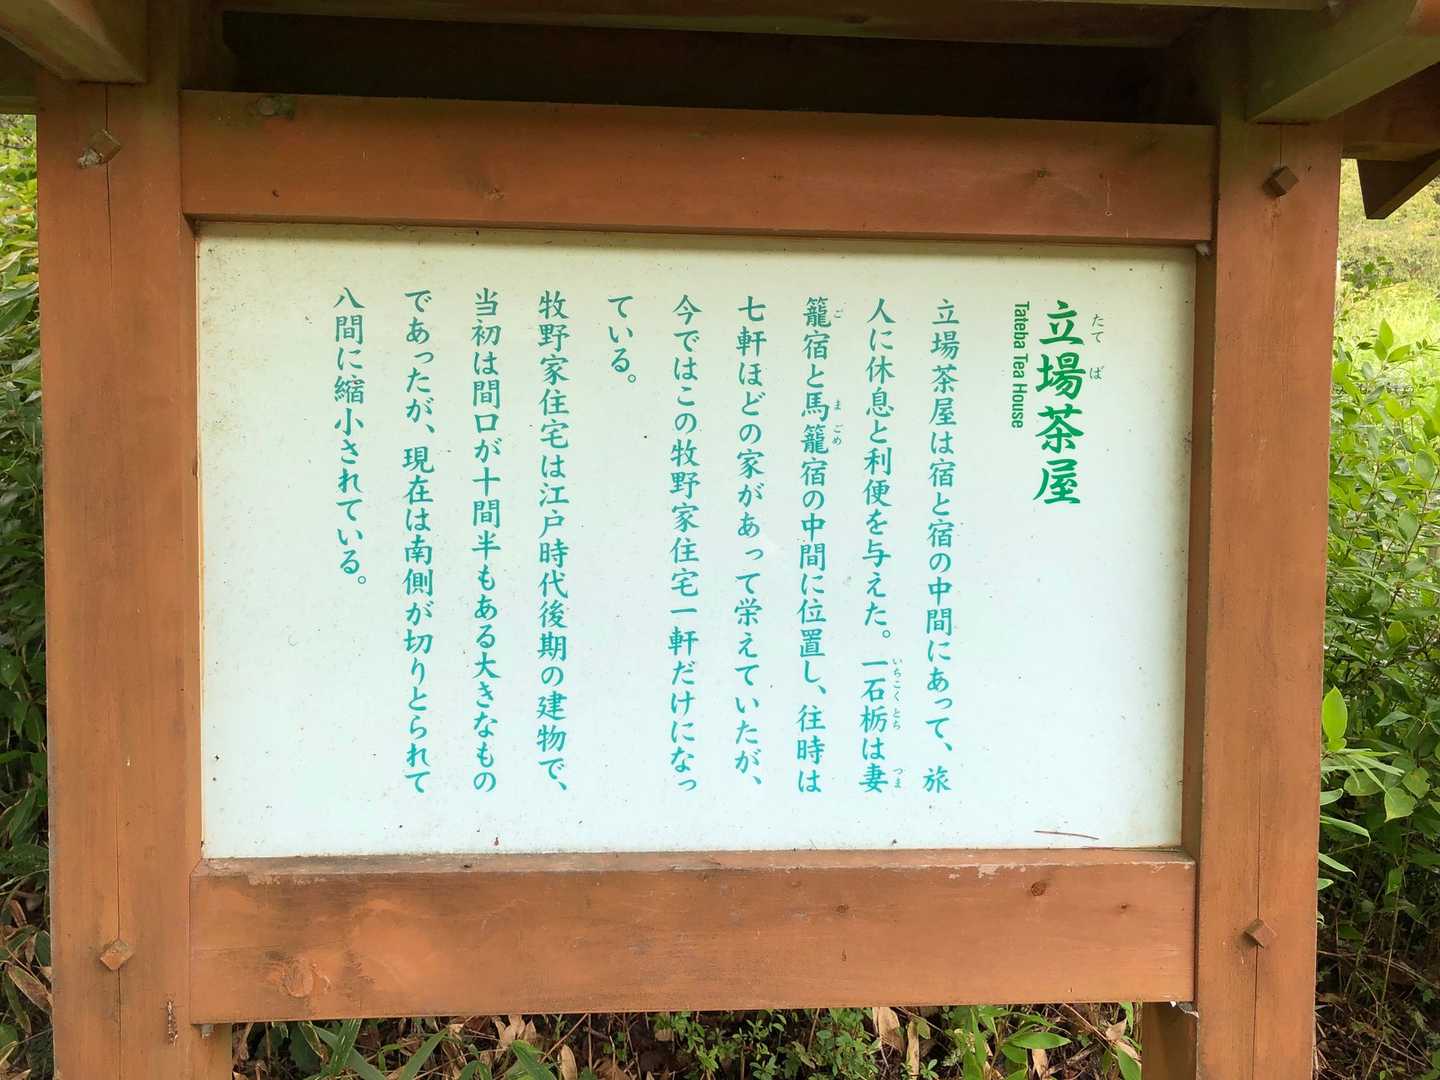 立場茶屋
たてば
Tateba Tea House
立場茶屋は宿と宿の中間にあって、旅
人に休息と利便を与えた。一石栃は妻
いちこくとち
つま
籠宿と馬籠宿の中間に位置し、往時は
ご
まごめ
七軒ほどの家があって栄えていたが、
今ではこの牧野家住宅一軒だけになっ
ている。
牧野家住宅は江戸時代後期の建物で、
当初は間口が十間半もある大きなもの
であったが、現在は南側が切りとられて
八間に縮小されている。